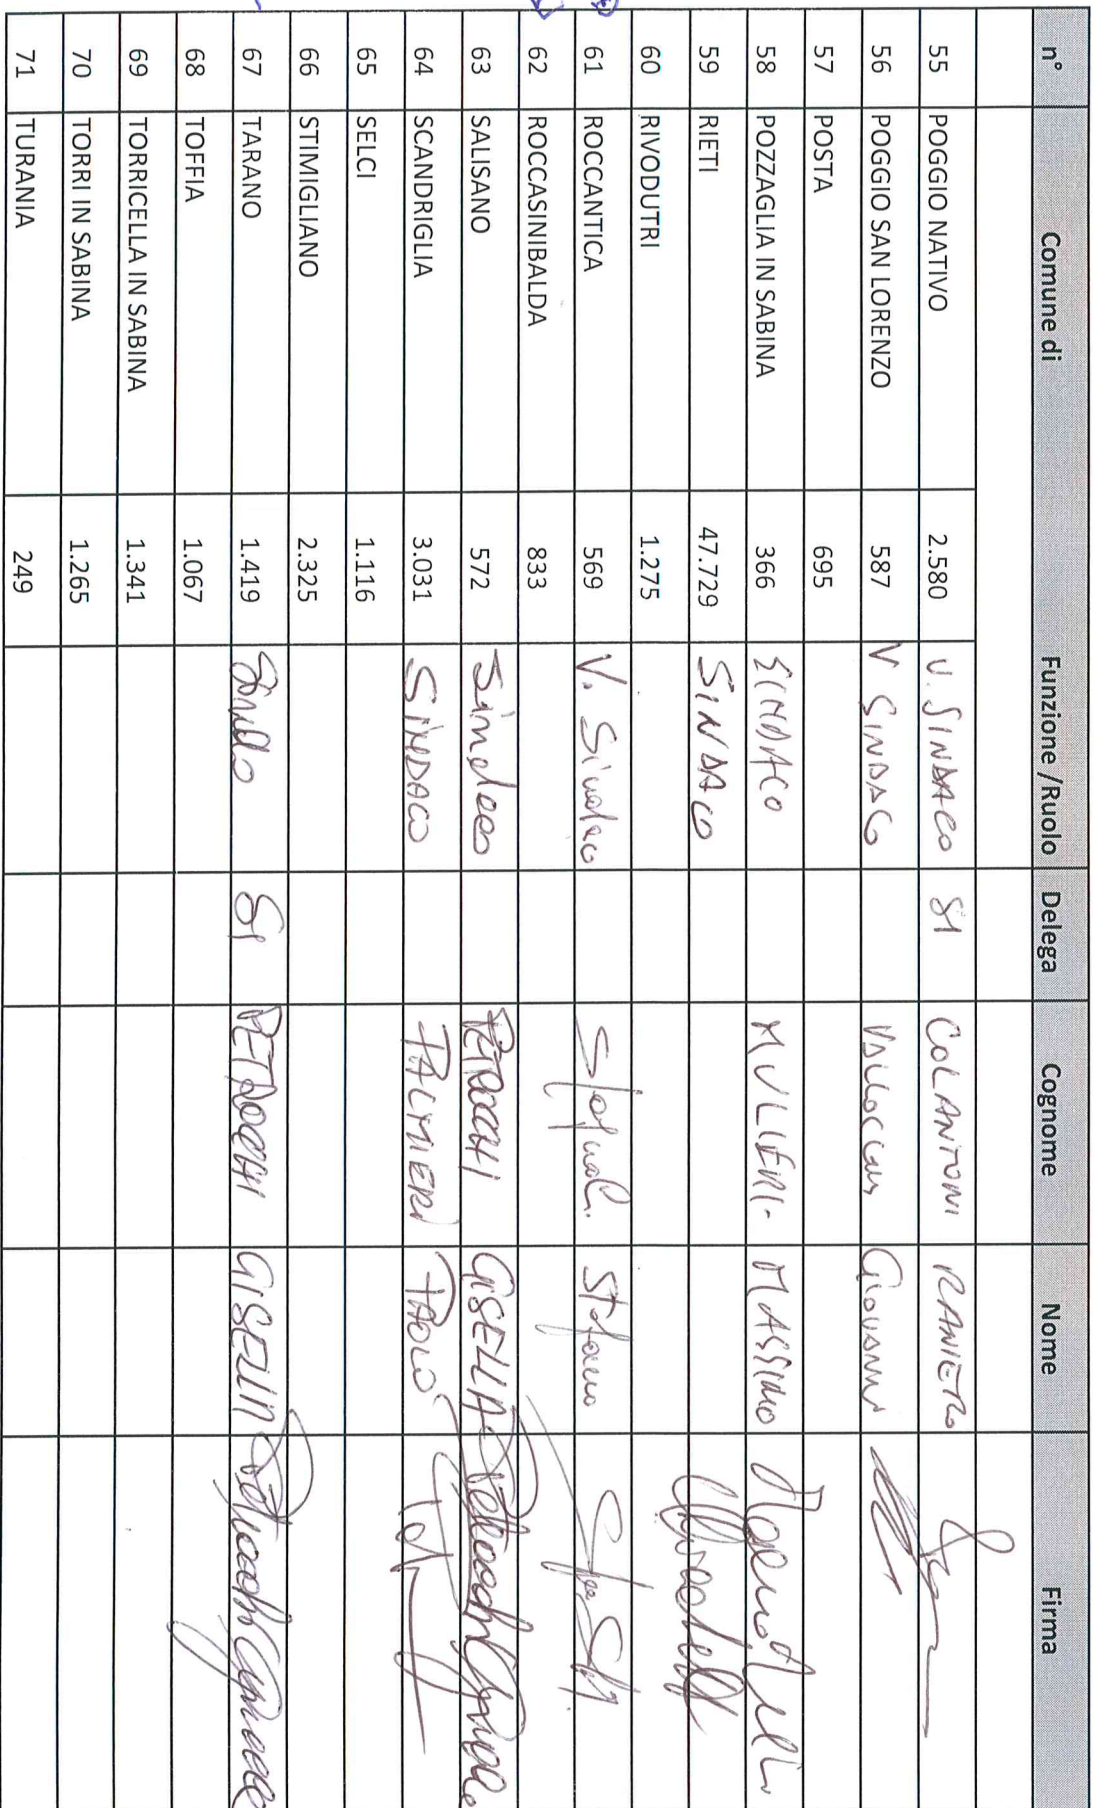 n° Comune di Funzione /Ruolo Delega Cognome Nome Firma
55 POGGIO NATIVO 2.580 V. SINDACO SI COLANTONI RANIERO
56 POGGIO SAN LORENZO 587 V SINDACO Giovanni
57 POSTA 695
58 POZZAGLIA IN SABINA 366 SINDACO MULIERI MASSIMO
59 RIETI 47.729 SINDACO
60 RIVODUTRI 1.275
61 ROCCANTICA 569 V. Sindaco Stefano
62 ROCCASINIBALDA 833
63 SALISANO 572 Sindaco PETROCCHI GISELLA
64 SCANDRIGLIA 3.031 SINDACO PALMIERI PAOLO
65 SELCI 1.116
66 STIMIGLIANO 2.325
67 TARANO 1.419 SI PETROCCHI GISELLA
68 TOFFIA 1.067
69 TORRICELLA IN SABINA 1.341
70 TORRI IN SABINA 1.265
71 TURANIA 249